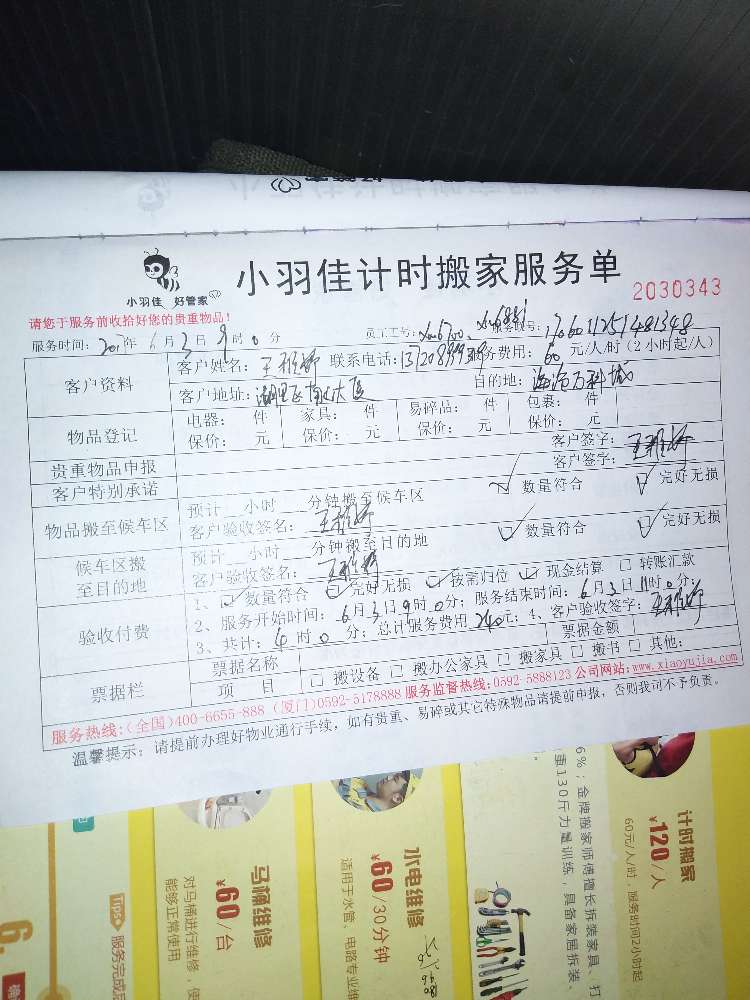 小羽佳 好管家
小羽佳计时搬家服务单
2030343
请您于服务前收拾好您的贵重物品!
服务时间: 6月3日9时0分 员工工号: 服务账号:
客户资料
客户姓名: 联系电话: 服务费用:60元/人/时(2小时起/人)
客户地址: 目的地:海沧万科城
物品登记
电器: 件 家具: 件 易碎品: 件 包裹: 件
保价: 元 保价: 元 保价: 元 保价: 元
贵重物品申报 客户签字:
客户特别承诺 客户签字:
物品搬至候车区
预计 小时 分钟搬至候车区 数量符合 完好无损
客户验收签名:
候车区搬至目的地
预计 小时 分钟搬至目的地 数量符合 完好无损
客户验收签名:
验收付费
1、数量符合 完好无损 按需归位 现金结算 转账汇款
2、服务开始时间:6月3日9时0分;服务结束时间:6月3日11时0分;
3、共计:4时0分;总计服务费用240元;4、客户验收签字:
票据栏
票据名称 票据金额
项 目 搬设备 搬办公家具 搬家具 搬书 其他:
服务热线:(全国)400-6655-888 (厦门)0592-5178888 服务监督热线:0592-5888123 公司网站:www.xiaoyujia.com
温馨提示:请提前办理好物业通行手续,如有贵重、易碎或其它特殊物品请提前申报,否则我司不予负责。
计时搬家
¥120/人
60元/人/时,服务时间2小时起
6%;金牌搬家师傅擅长拆装家具、打
重130斤力量训练,具备家居拆装、
水电维修
¥60/30分钟
适用于水管、电路专业维
马桶维修
¥60/台
对马桶进行维修,使
能够正常使用
Tips
服务完成后
6.